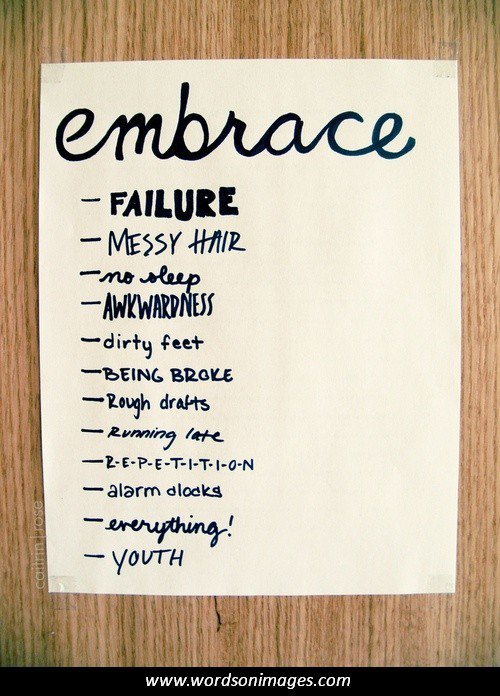 embrace
— FAILURE
— MESSY HAIR
— no sleep
— AWKWARDNESS
— dirty feet
— BEING BROKE
— Rough drafts
— Running late
— R-E-P-E-T-I-T-I-O-N
— alarm clocks
— everything!
— YOUTH
www.wordsonimages.com